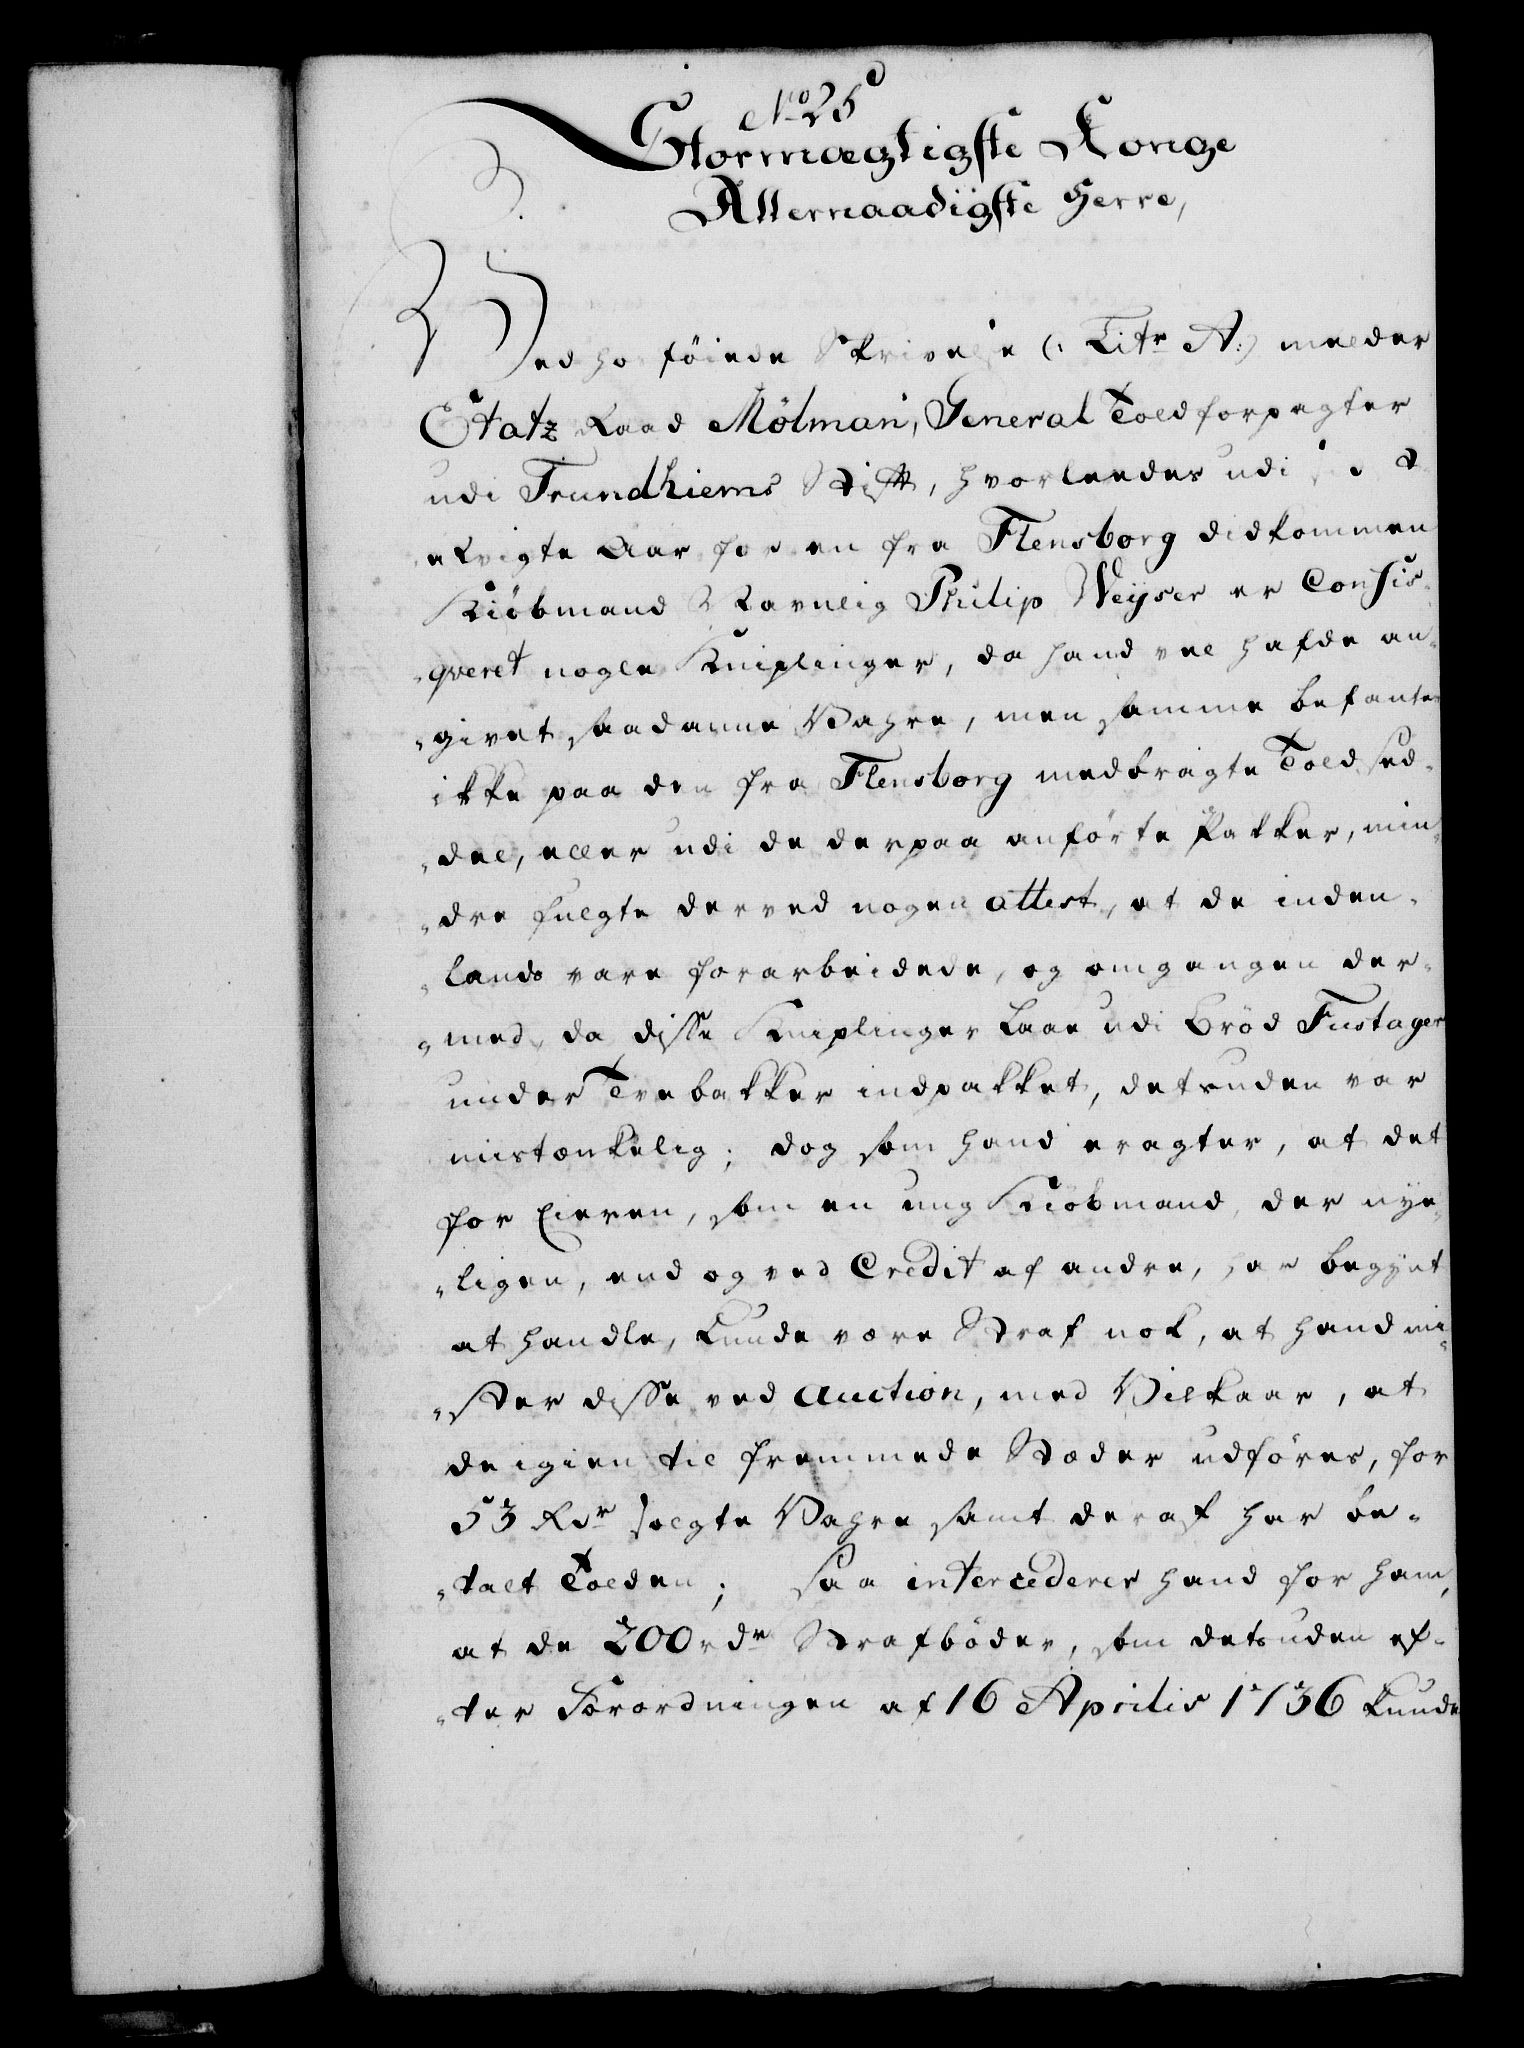 No 25
Stormægtigste Konge
Allernaadigste Herre,
Ved hosføiede Skrivelse (: Litr A:) melder
Etatz Raad Mölman, General Toldforpagter
udi Trundhiems Stift, hvorledes udi sidst
afvigte Aar for en fra Flensborg didkommen
Kiöbmand Navnlig Philip Weyser er Confis-
qveret nogle Kniplinger, da hand vel hafde an-
givet saadanne Vahre, men samme befantes
ikke paa den fra Flensborg medbragte Told sed-
del, eller udi de derpaa anförte Pakker, min-
dre fulgte derved nogen attest, at de inden-
lands vare forarbeidede, og omgangen der-
med, da disse Kniplinger laae udi Bröd Fustager
under Tvebakker indpakket, detsuden var
mistænkelig; dog som hand eragter, at det
for Eieren, som en ung Kiöbmand, der nye-
ligen, end og ved Credit af andre, har begynt
at handle, kunde være Straf nok, at hand mi-
ster disse ved Auction, med Vilkaar, at
de igien til fremmede Stæder udföres, for
53 Rdr solgte Vahre samt deraf har be-
talt Tolden; Saa intercederer hand for ham,
at de 200 rdr Strafböder, som detsuden ef-
ter Forordningen af 16 Aprilis 1736 kunde